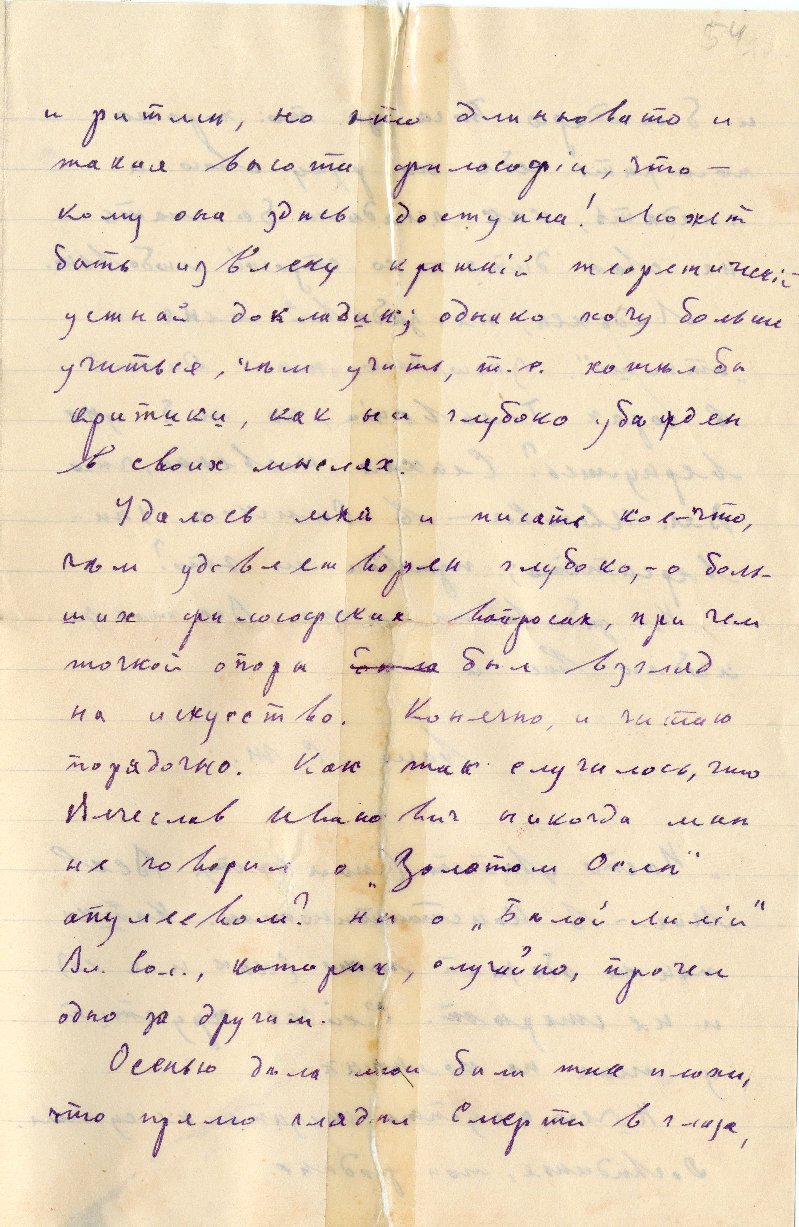 54
и ритми, но это длинновато и
такая высота философіи, что –
кому она здѣсь доступна! Может
быть извлеку краткій теоретическій
устный докладик; однако хочу больше
учиться, чѣм учить, т.е. хотѣл бы
критики, как ни глубоко убѣжден
в своих мыслях.
Удалось мнѣ и писать кое-что,
чѣм удовлетворен глубоко, – о боль-
ших философских вопросах, при чем
точкой опоры был взгляд
на искусство. Конечно, и читаю
порядочно. Как так случилось, что
Вячеслав Иванович никогда мнѣ
не говорил о „Золотом Ослѣ"
апулеевом? ни о „Бѣлой Лиліи"
Вл. Сол., которых, случайно, прочел
одно за другим.
Осенью дѣла мои были так плохи,
что прямо глядѣл Смерти в глаза,